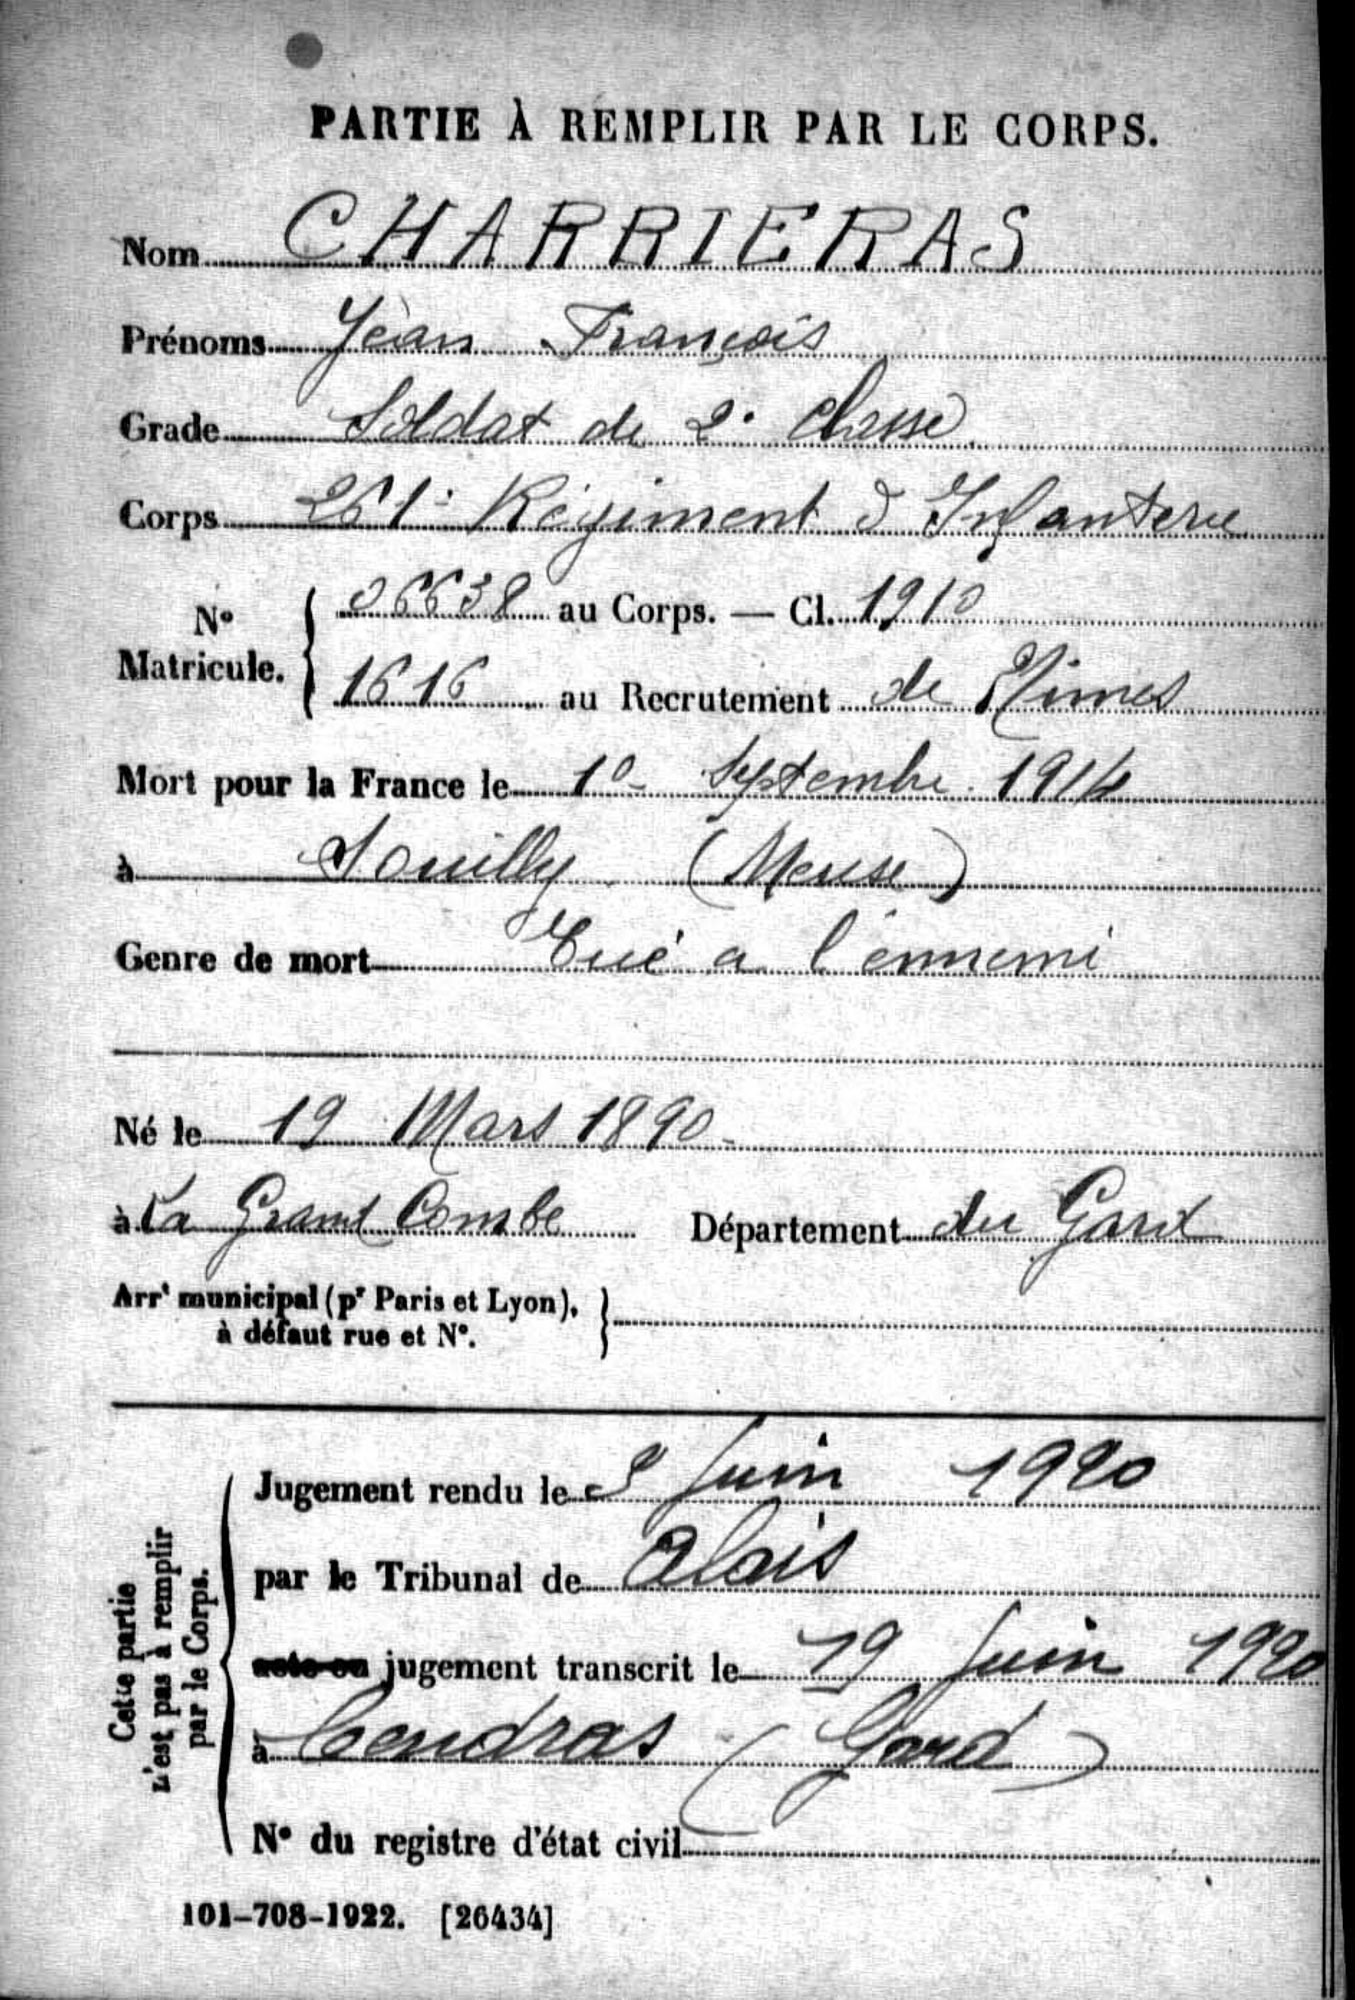 PARTIE À REMPLIR PAR LE CORPS.
Nom CHARRIERAS
Prénoms Jean François
Grade Soldat de 2e Classe
Corps 261e Régiment d'Infanterie
No Matricule. { 06638 au Corps. — Cl. 1910
1616 au Recrutement de Nimes
Mort pour la France le Septembre 1914
à Souilly (Meuse)
Genre de mort Tué a l'ennemi
Né le 19 Mars 1890
à La Grand Combe Département du Gard
Arrt municipal (pr Paris et Lyon),
à défaut rue et No. }
Cette partie
n'est pas à remplir
par le Corps.
Jugement rendu le Juin 1920
par le Tribunal de Alais
acte ou jugement transcrit le 19 Juin 1920
à Cendras (Gard)
No du registre d'état civil
101-708-1922. [26434]